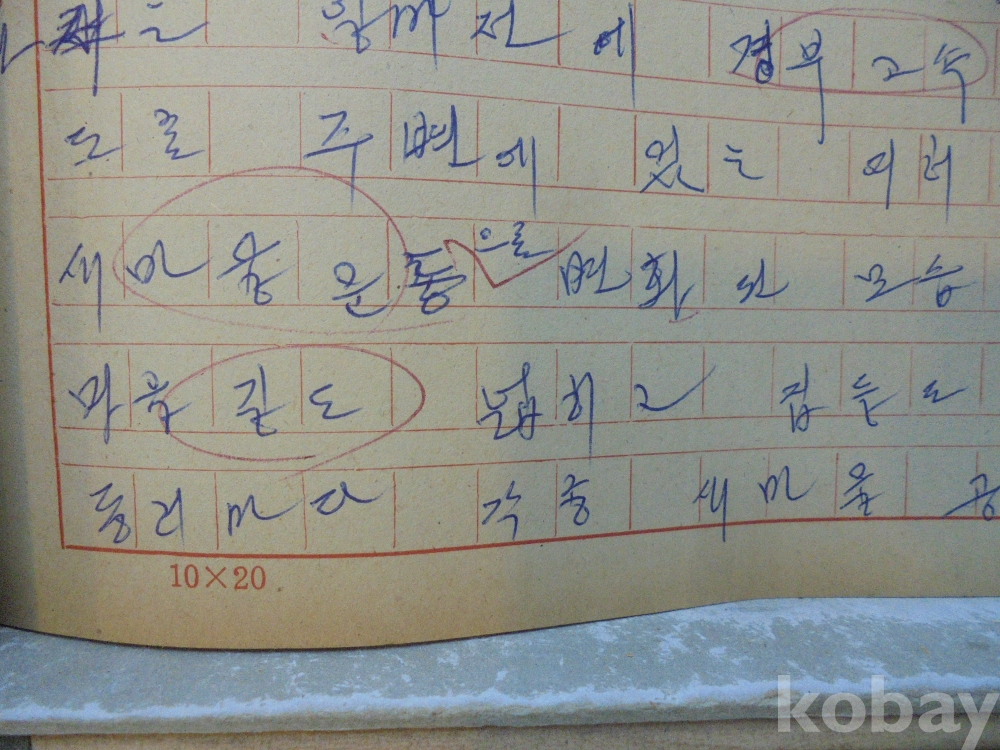 는 얼마전에 경부고속
도로 주변에 있는 여러
새마을 운동으로 변화된 모습
마을 길도 넓히고
동리마다 각종 새마을 공
10×20
kobay